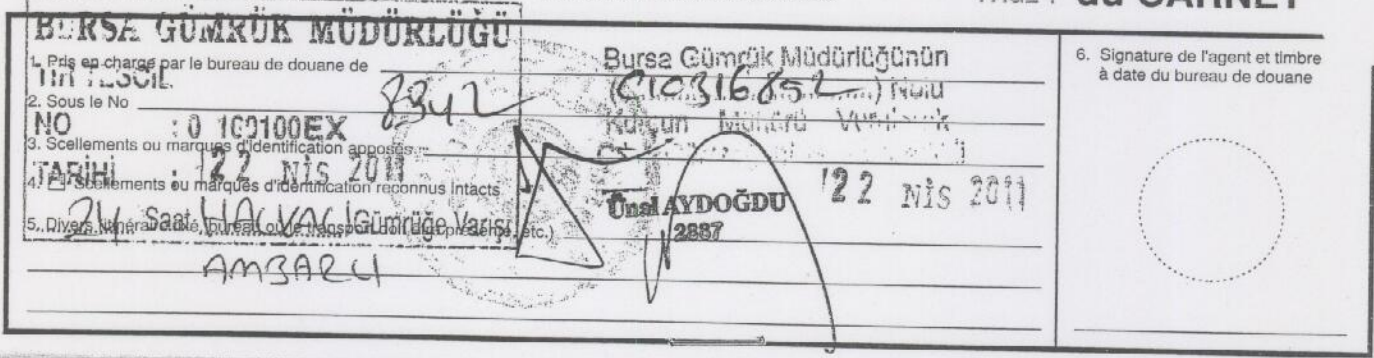 du CARNET
BURSA GÜMRÜK MÜDÜRLÜĞÜ
1. Pris en charge par le bureau de douane de
TIR TESCİL
2. Sous le No 8342
NO : 0 160100EX
3. Scellements ou marques d'identification apposés
TARİHİ : 22 NİS 2011
4. Scellements ou marques d'identification reconnus intacts
24 Saat HALKALI Gümrüğe Varış
5. Divers (itinéraire fixé, bureau où le transport doit être présenté, etc.)
AMBARLI
Bursa Gümrük Müdürlüğünün
(C10316852) Nolu
Kurşun Mühürü
Ünal AYDOĞDU
2887
22 NİS 2011
6. Signature de l'agent et timbre
à date du bureau de douane